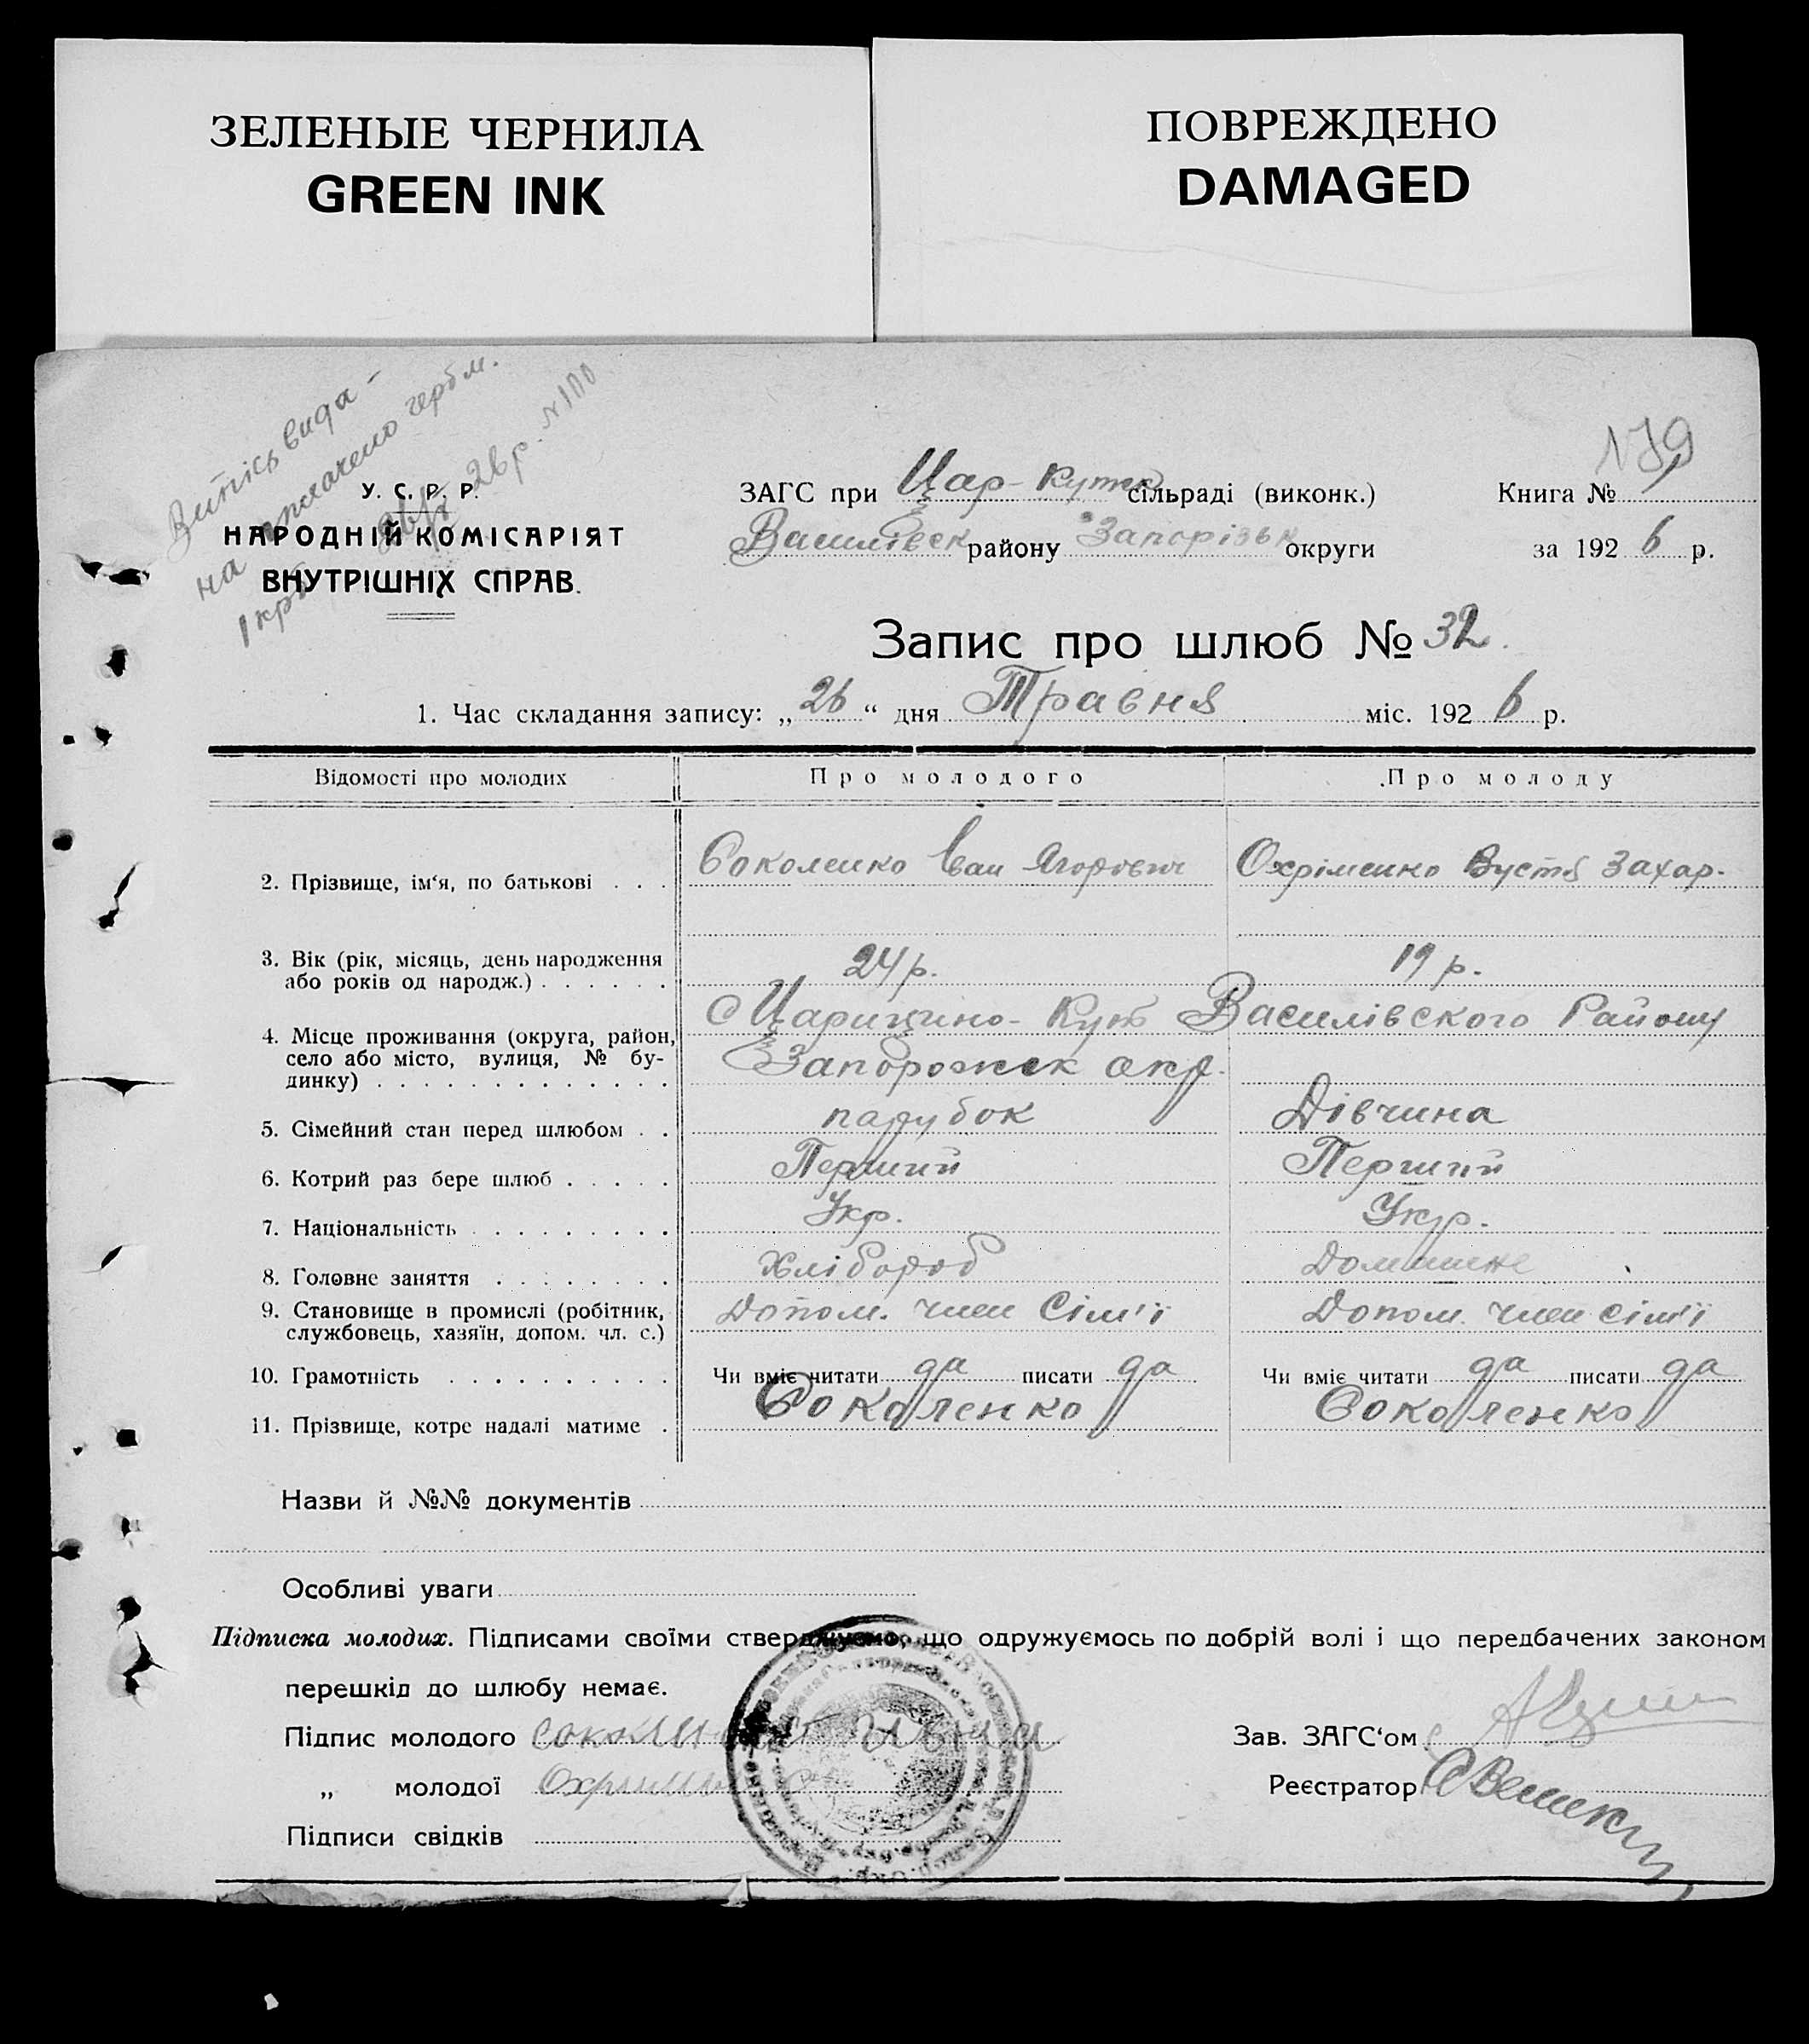 ЗЕЛЕНЫЕ ЧЕРНИЛА
GREEN INK
ПОВРЕЖДЕНО
DAMAGED
Випісь вида-
на оплачено герб м.
1 крб 26/V 26 р. №100
№79
У. С. Р. Р.
НАРОДНІЙ КОМІСАРІЯТ
ВНУТРІШНІХ СПРАВ.
ЗАГС при Цар-Кутск сільраді (виконк.) Книга №
Василівск району Запорізьк округи за 1926 р.
Запис про шлюб № 32.
1. Час складання запису: „26“ дня Травня міс. 1926 р.
Відомості про молодих Про молодого Про молоду
2. Прізвище, ім‘я, по батькові . . . Соколенко Іван Ягорович Охріменко Вустя Захар.
3. Вік (рік, місяць, день народження 24 р. 19 р.
або років од народж.) . . . . . .
4. Місце проживання (округа, район, С Царицино-Кут Василівского Району
село або місто, вулиця, № бу- Запорожск окр.
динку) . . . . . . . . . . . . .
5. Сімейний стан перед шлюбом . . парубок Дівчина
6. Котрий раз бере шлюб . . . . . Перший Перший
7. Національність . . . . . . . . Укр. Укр.
8. Головне заняття . . . . . . . . Хлібороб Домашнє
9. Становище в промислі (робітник, Допом. член Сім'ї Допом. член сім'ї
службовець, хазяїн, допом. чл. с.)
10. Грамотність . . . . . . . . . . Чи вміє читати да писати да Чи вміє читати да писати да
11. Прізвище, котре надалі матиме . Соколенко Соколенко
Назви й №№ документів
Особливі уваги
Підписка молодих. Підписами своїми стверджуємо, що одружуємось по добрій волі і що передбачених законом
перешкід до шлюбу немає.
Підпис молодого Зав. ЗАГС‘ом
„ молодої Реєстратор
Підписи свідків